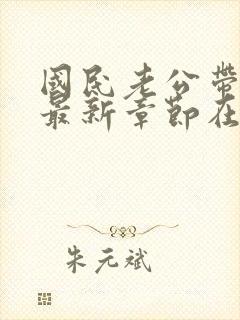 國民老公帶
最新章節在
朱元斌